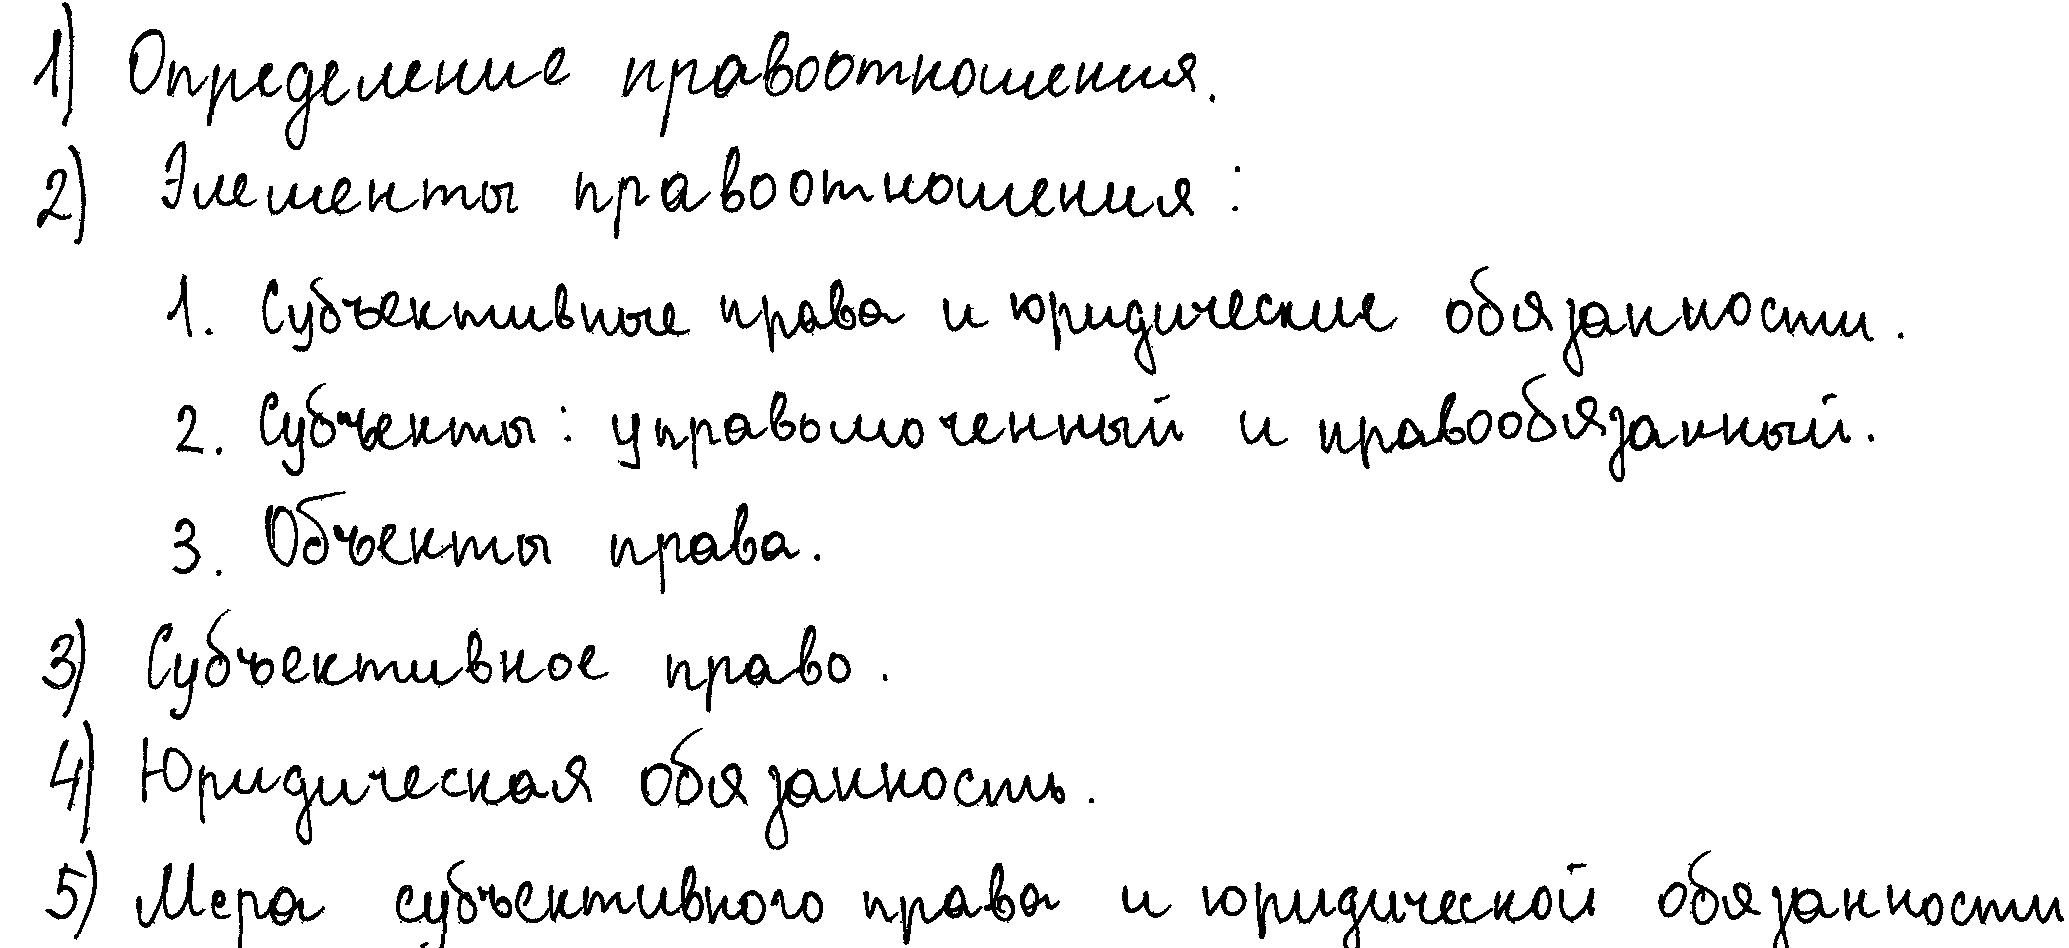 1) Определение правоотношения.
2) Элементы правоотношения:
1. Субъективные права и юридические обязанности.
2. Субъекты: управомоченный и правообязанный.
3. Объекты права.
3) Субъективное право.
4) Юридическая обязанность.
5) Мера субъективного права и юридической обязанности